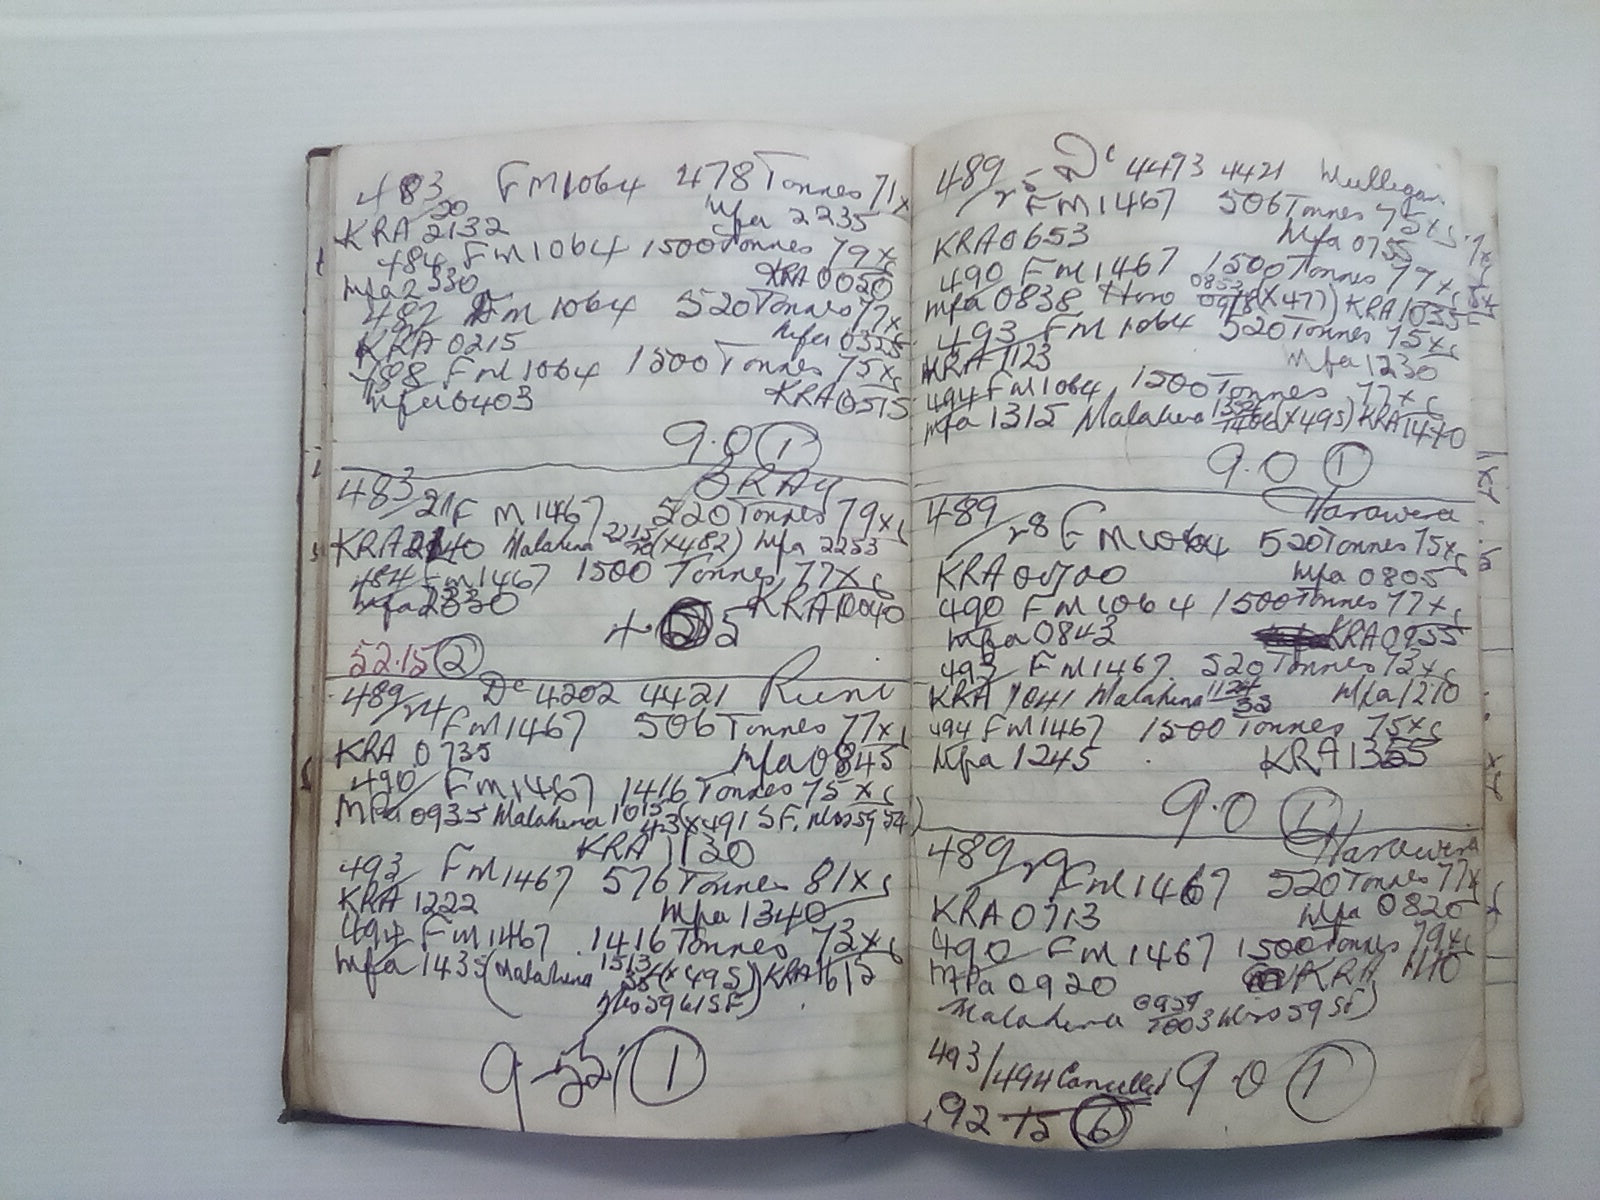 483/20 FM1064 478 Tonnes 71x
KRA 2132 Mpa 2235
484 FM1064 1500 Tonnes 79xs
Mpa 2330 KRA 0050
487 FM1064 520 Tonnes 77xs
KRA 0215 Mpa 0325
488 FM1064 1500 Tonnes 75xs
Mpa 0403 KRA 0515
9.0 1
483/21 FM1467 520 Tonnes 79xs
KRA 2140 Malahina 2215 (x482) Mpa 2253
484 FM1467 1500 Tonnes 77xs
Mpa 2330 KRA 0040
52.15 2
489/24 Dc 4202 4421 Runi
FM1467 506 Tonnes 77xs
KRA 0735 Mpa 0845
490 FM1467 1416 Tonnes 75xs
MPa 0935 Malahina 1015/43 x491 SF,
KRA 1120
493 FM1467 576 Tonnes 81xs
KRA 1222 Mpa 1340
494 FM1467 1416 Tonnes 73xs
Mpa 1435 (Malahina 1513/58 (x495) KRA 1612
5961 SF)
9-55 1
489/25 Dc 4493 4421 Mulligan
FM1467 506 Tonnes 75xs
KRA 0653 Mpa 0755
490 FM1467 1500 Tonnes 77xs
Mpa 0838 0853/0918 (x477) KRA 1035
493 FM1064 520 Tonnes 75xs
KRA 1123 Mpa 1230
494 FM1064 1500 Tonnes 77xs
Mpa 1315 Malahina 1354/1406 (x495) KRA 1440
9.0 1
Harawera
489/28 FM1064 520 Tonnes 75xs
KRA 0700 Mpa 0805
490 FM1064 1500 Tonnes 77xs
Mpa 0843 KRA 0955
493 FM1467 520 Tonnes 73xs
KRA 1041 Malahina 1124/32 Mpa 1210
494 FM1467 1500 Tonnes 75xs
Mpa 1245 KRA 1355
9.0 1
Harawera
489/29 FM1467 520 Tonnes 77x
KRA 0713 Mpa 0820
490 FM1467 1500 Tonnes 79xs
MPa 0920 KRA 1140
Malahina 0959/1003 59 SF)
493/494 Cancelled 9.0 1
92-15 6